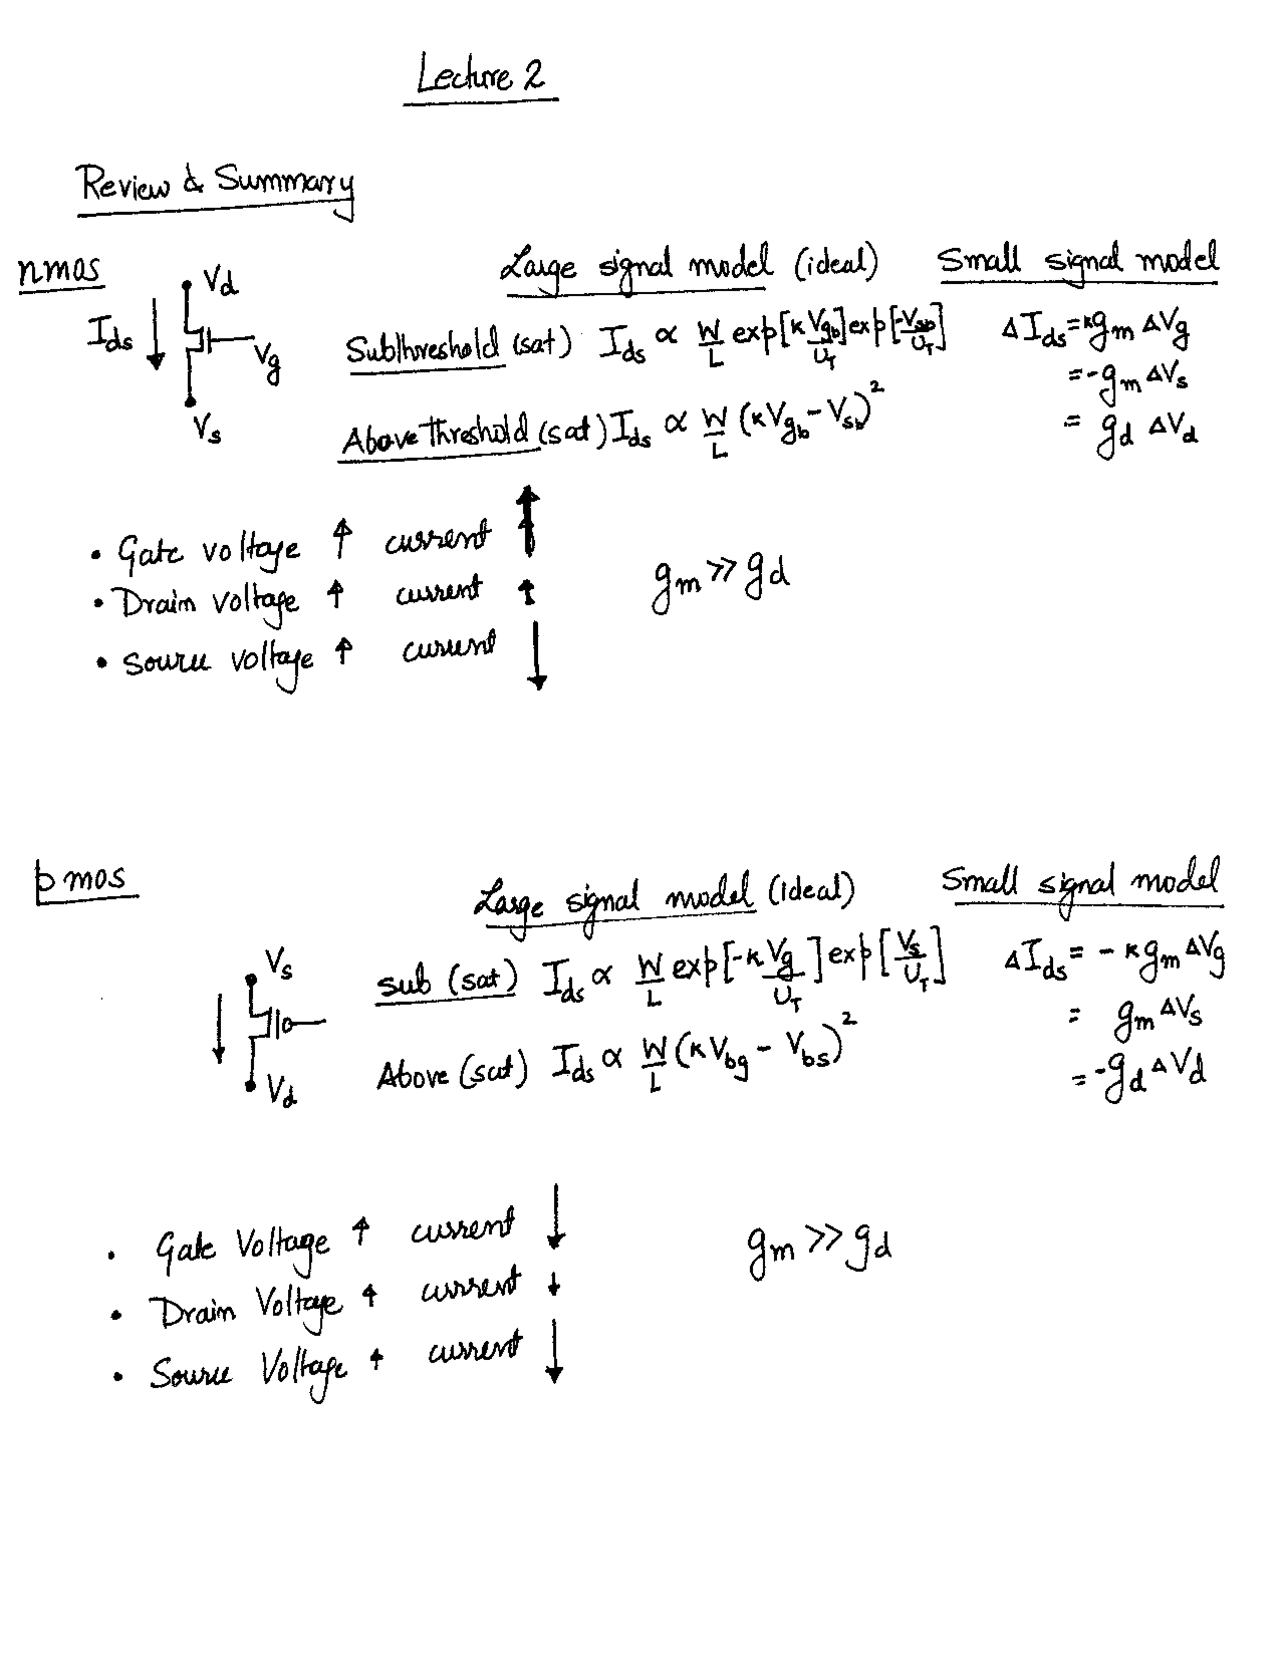 Lecture 2
Review & Summary
nmos
Vd
Ids
Vg
Vs
Large signal model (ideal)
Small signal model
Subthreshold (sat) Ids ∝ W/L exp[κ Vgb/UT] exp[-Vsb/UT]
ΔIds = κgm ΔVg
= -gm ΔVs
Above threshold (sat) Ids ∝ W/L (κVgb - Vsb)²
= gd ΔVd
• Gate voltage ↑ current ↑
• Drain voltage ↑ current ↑
gm >> gd
• Source voltage ↑ current ↓
pmos
Large signal model (ideal)
Small signal model
Vs
Vd
sub (sat) Ids ∝ W/L exp[-κ Vg/UT] exp[Vs/UT]
ΔIds = - κgm ΔVg
= gm ΔVs
Above (sat) Ids ∝ W/L (κVbg - Vbs)²
= -gd ΔVd
• Gate Voltage ↑ current ↓
• Drain Voltage ↑ current ↓
gm >> gd
• Source Voltage ↑ current ↓